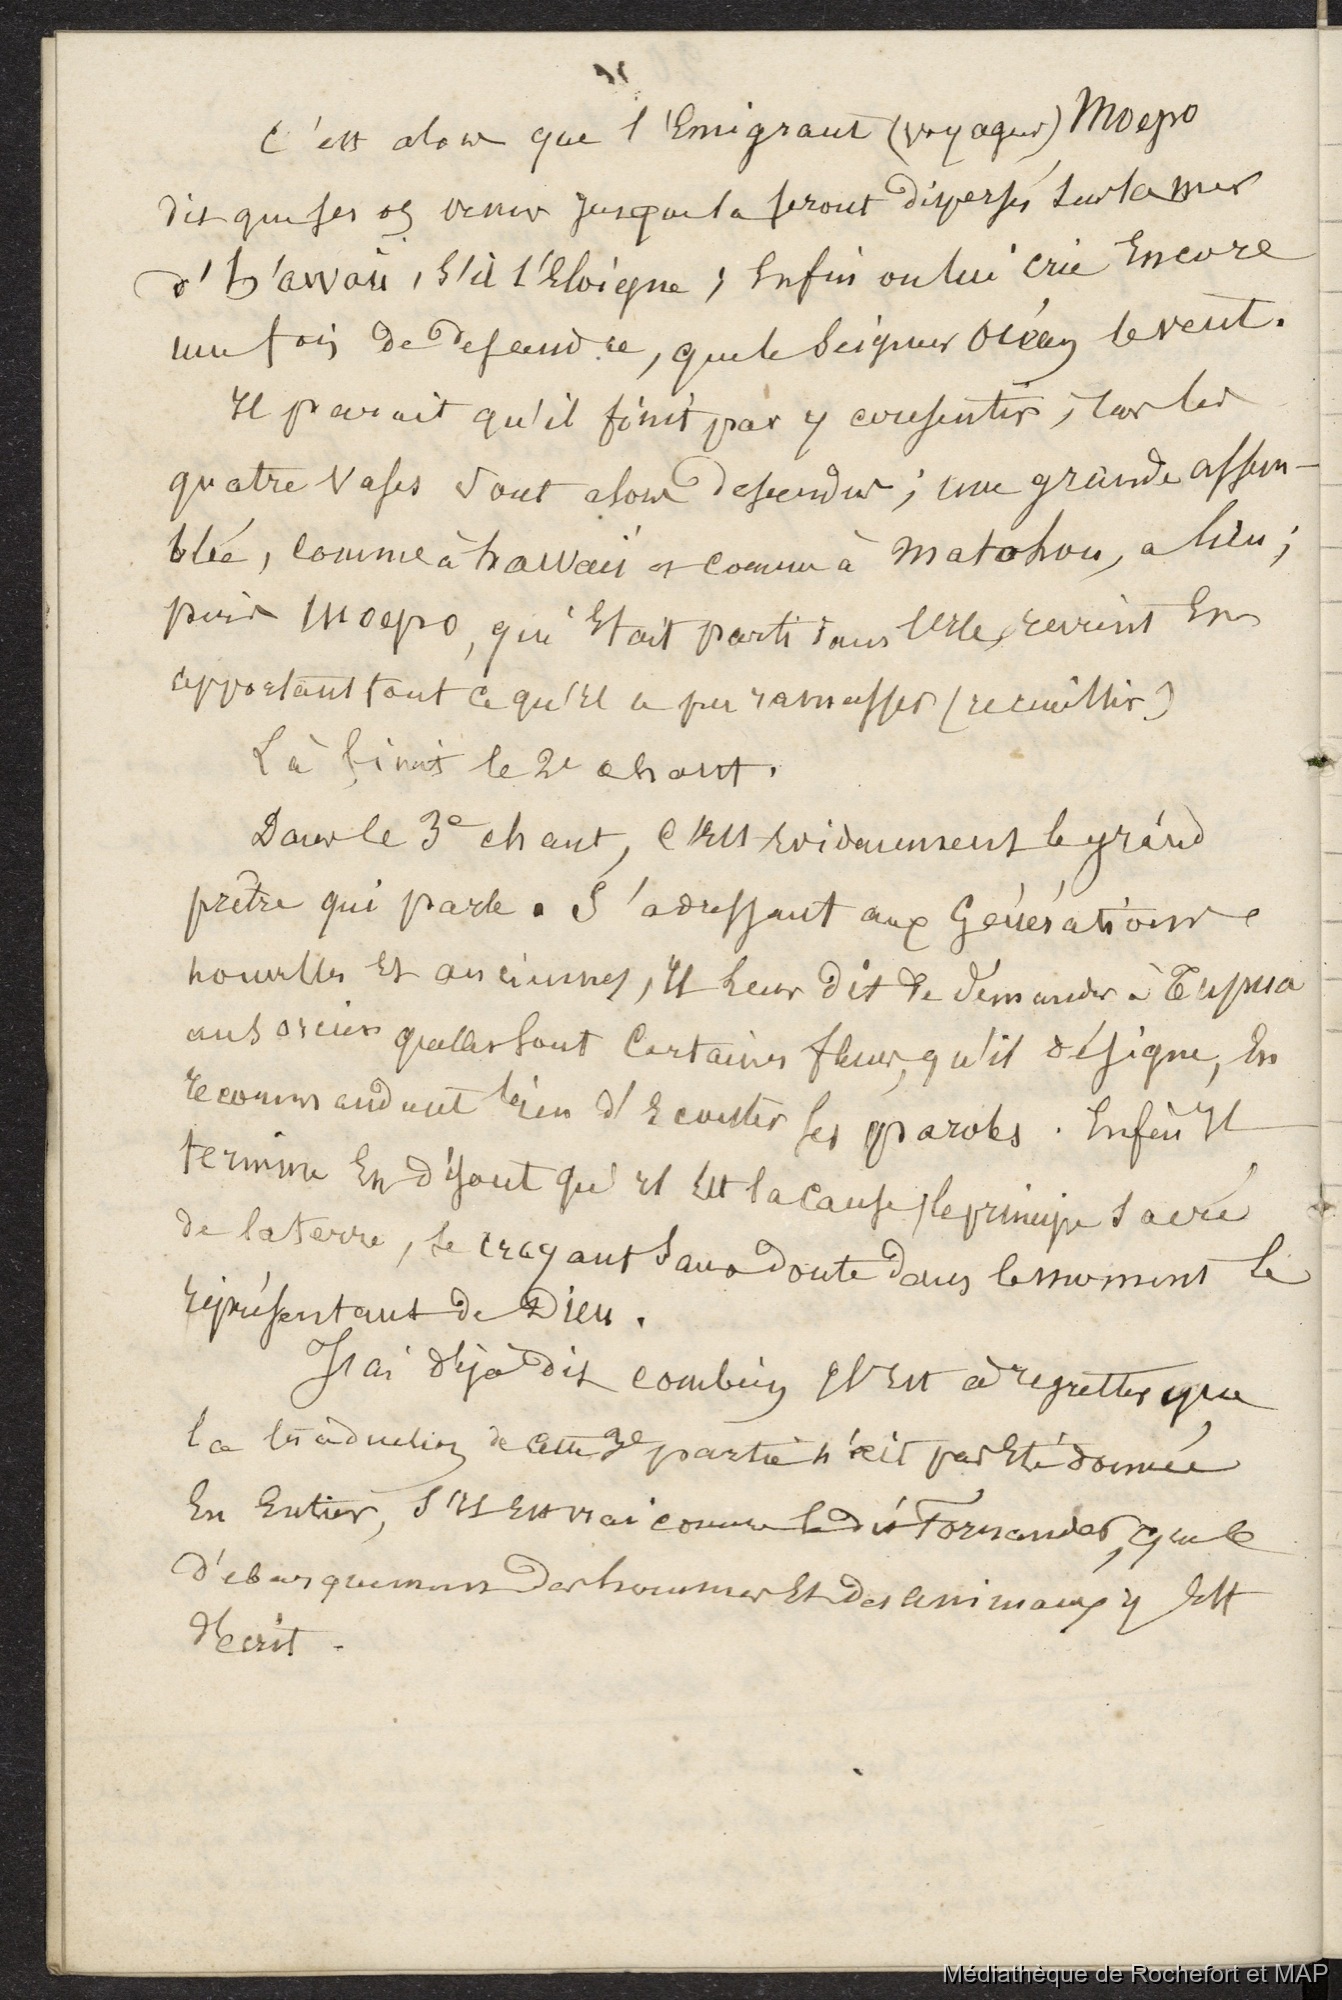 C'est alors que l'Emigrant (voyageur) Moepo
dit que ses os venus jusque la seront dispersés sur la mer
d'h'awaii, s'il s'éloigne ; Enfin on lui crie Encore
une fois de descendre, que le Seigneur Océan le veut.
Il parait qu'il finit par y consentir ; car les
quatre vases sont alors descendus ; une grande assem-
blée, comme à hawaii et comme à Matahou, a lieu ;
puis Moepo, qui Etait parti dans l'Ile, revint En
apportant tout ce qu'Il a pu ramasser (recueillir)
Là finit le 2e chant.
Dans le 3e chant, c'Est Evidemment le grand
prêtre qui parle. S'adressant aux Générations
nouvelles Et anciennes, Il leur dit de demander à Tupua
au Sorcier quelles sont Certaines fleurs, qu'il désigne, En
recommandant bien d'Ecouter ses paroles. Enfin Il
termine En disant qu'Il Est la cause, le principe sacré
de la terre, se croyant Sans doute dans le moment le
représentant de Dieu.
J'ai déjà dit combien Il Est à regretter que
la traduction de cette 3e partie n'ait pas Eté donnée
En Entier, s'Il Est vrai comme le dit Fornander, que le
débarquement des hommes Et des animaux y Est
décrit.
Médiathèque de Rochefort et MAP